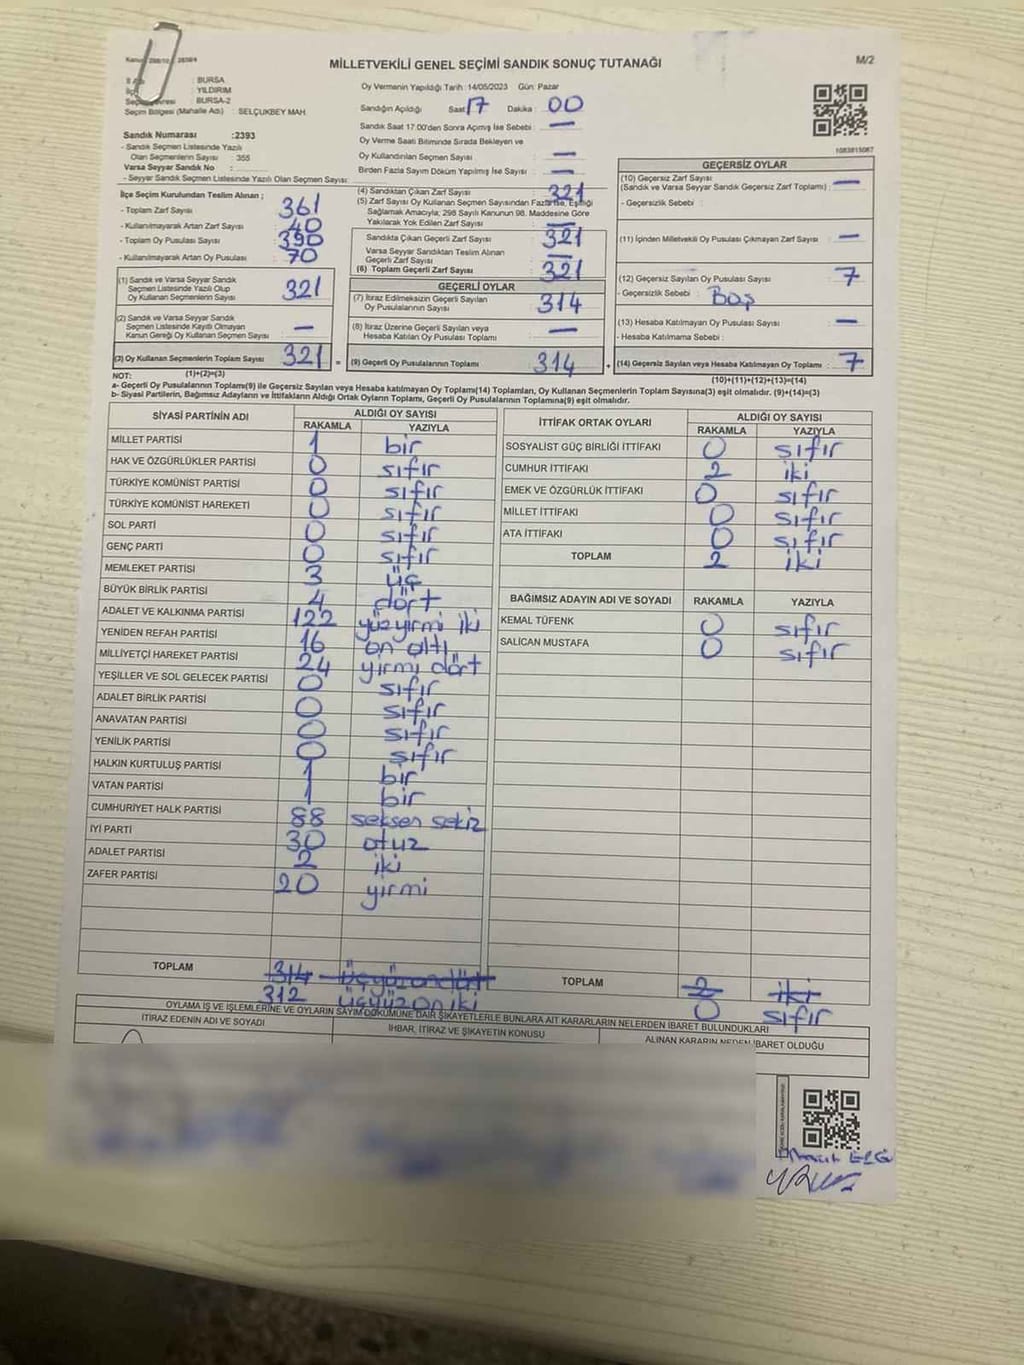 MİLLETVEKİLİ GENEL SEÇİMİ SANDIK SONUÇ TUTANAĞI
M/2
: BURSA
: YILDIRIM
: BURSA-2
Seçim Bölgesi (Mahalle Adı) : SELÇUKBEY MAH.
Sandık Numarası :2393
- Sandık Seçmen Listesinde Yazılı
Olan Seçmenlerin Sayısı : 355
Varsa Seyyar Sandık No :
- Seyyar Sandık Seçmen Listesinde Yazılı Olan Seçmen Sayısı:
Oy Vermenin Yapıldığı Tarih: 14/05/2023 Gün: Pazar
Sandığın Açıldığı Saat: 17 Dakika : 00
Sandık Saat 17.00'den Sonra Açılmış İse Sebebi : —
Oy Verme Saati Bitiminde Sırada Bekleyen ve
Oy Kullandırılan Seçmen Sayısı : —
Birden Fazla Sayım Döküm Yapılmış İse Sayısı : —
1083815087
İlçe Seçim Kurulundan Teslim Alınan ;
- Toplam Zarf Sayısı : 361
- Kullanılmayarak Artan Zarf Sayısı : 40
- Toplam Oy Pusulası Sayısı : 390
- Kullanılmayarak Artan Oy Pusulası : 70
(1) Sandık ve Varsa Seyyar Sandık
Seçmen Listesinde Yazılı Olup
Oy Kullanan Seçmenlerin Sayısı : 321
(2) Sandık ve Varsa Seyyar Sandık
Seçmen Listesinde Kayıtlı Olmayan
Kanun Gereği Oy Kullanan Seçmen Sayısı : —
(3) Oy Kullanan Seçmenlerin Toplam Sayısı : 321 =
(1)+(2)=(3)
(4) Sandıktan Çıkan Zarf Sayısı : 321
(5) Zarf Sayısı Oy Kullanan Seçmen Sayısından Fazla İse, Eşitliği
Sağlamak Amacıyla; 298 Sayılı Kanunun 98. Maddesine Göre
Yakılarak Yok Edilen Zarf Sayısı : —
Sandıkta Çıkan Geçerli Zarf Sayısı : 321
Varsa Seyyar Sandıktan Teslim Alınan
Geçerli Zarf Sayısı : —
(6) Toplam Geçerli Zarf Sayısı : 321
GEÇERLİ OYLAR
(7) İtiraz Edilmeksizin Geçerli Sayılan
Oy Pusulalarının Sayısı : 314
(8) İtiraz Üzerine Geçerli Sayılan veya
Hesaba Katılan Oy Pusulası Toplamı : —
(9) Geçerli Oy Pusulalarının Toplamı : 314 +
GEÇERSİZ OYLAR
(10) Geçersiz Zarf Sayısı
(Sandık ve Varsa Seyyar Sandık Geçersiz Zarf Toplamı) : —
- Geçersizlik Sebebi :
(11) İçinden Milletvekili Oy Pusulası Çıkmayan Zarf Sayısı : —
(12) Geçersiz Sayılan Oy Pusulası Sayısı : 7
- Geçersizlik Sebebi : Boş
(13) Hesaba Katılmayan Oy Pusulası Sayısı : —
- Hesaba Katılmama Sebebi :
(14) Geçersiz Sayılan veya Hesaba Katılmayan Oy Toplamı : 7
(10)+(11)+(12)+(13)=(14)
NOT:
a- Geçerli Oy Pusulalarının Toplamı(9) ile Geçersiz Sayılan veya Hesaba katılmayan Oy Toplamı(14) Toplamları, Oy Kullanan Seçmenlerin Toplam Sayısına(3) eşit olmalıdır. (9)+(14)=(3)
b- Siyasi Partilerin, Bağımsız Adayların ve İttifakların Aldığı Ortak Oyların Toplamı, Geçerli Oy Pusulalarının Toplamına(9) eşit olmalıdır.
SİYASİ PARTİNİN ADI ALDIĞI OY SAYISI
RAKAMLA YAZIYLA
MİLLET PARTİSİ 1 bir
HAK VE ÖZGÜRLÜKLER PARTİSİ 0 sıfır
TÜRKİYE KOMÜNİST PARTİSİ 0 sıfır
TÜRKİYE KOMÜNİST HAREKETİ 0 sıfır
SOL PARTİ 0 sıfır
GENÇ PARTİ 0 sıfır
MEMLEKET PARTİSİ 3 üç
BÜYÜK BİRLİK PARTİSİ 4 dört
ADALET VE KALKINMA PARTİSİ 122 yüzyirmi iki
YENİDEN REFAH PARTİSİ 16 on altı
MİLLİYETÇİ HAREKET PARTİSİ 24 yirmi dört
YEŞİLLER VE SOL GELECEK PARTİSİ 0 sıfır
ADALET BİRLİK PARTİSİ 0 sıfır
ANAVATAN PARTİSİ 0 sıfır
YENİLİK PARTİSİ 0 sıfır
HALKIN KURTULUŞ PARTİSİ 1 bir
VATAN PARTİSİ 1 bir
CUMHURİYET HALK PARTİSİ 88 seksen sekiz
İYİ PARTİ 30 otuz
ADALET PARTİSİ 2 iki
ZAFER PARTİSİ 20 yirmi
TOPLAM 314 üçyüzondört
312 üçyüzoniki
İTTİFAK ORTAK OYLARI ALDIĞI OY SAYISI
RAKAMLA YAZIYLA
SOSYALİST GÜÇ BİRLİĞİ İTTİFAKI 0 sıfır
CUMHUR İTTİFAKI 2 iki
EMEK VE ÖZGÜRLÜK İTTİFAKI 0 sıfır
MİLLET İTTİFAKI 0 sıfır
ATA İTTİFAKI 0 sıfır
TOPLAM 2 iki
BAĞIMSIZ ADAYIN ADI VE SOYADI RAKAMLA YAZIYLA
KEMAL TÜFENK 0 sıfır
SALİCAN MUSTAFA 0 sıfır
TOPLAM 2 iki
0 sıfır
OYLAMA İŞ VE İŞLEMLERİNE VE OYLARIN SAYIM DÖKÜMÜNE DAİR ŞİKAYETLERLE BUNLARA AİT KARARLARIN NELERDEN İBARET BULUNDUKLARI
İTİRAZ EDENİN ADI VE SOYADI İHBAR, İTİRAZ VE ŞİKAYETİN KONUSU ALINAN KARARIN NEDEN İBARET OLDUĞU